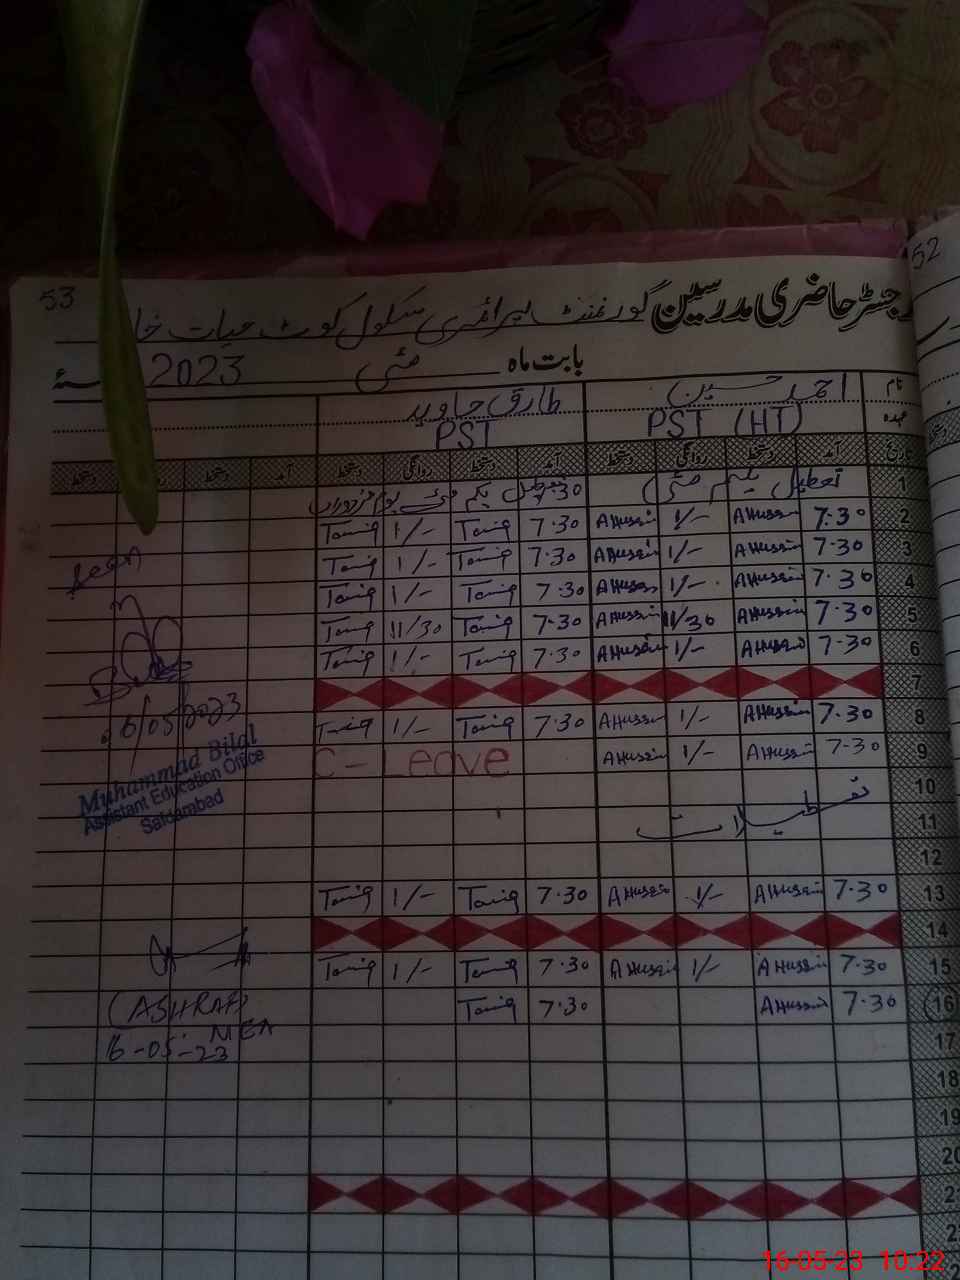 53
52
رجسٹر حاضری مدرسین گورنمنٹ پرائمری سکول کوٹ حیات
بابت ماہ مئی 2023
نام احمد حسین طارق جاوید
عہدہ PST (HT) PST
آمد دستخط روانگی دستخط آمد دستخط روانگی دستخط آمد دستخط دستخط
1 تعطیل یکم مئی 7.30 تعطیل یکم مئی یوم مزدوراں
2 7:30 AHussain 1/- AHussain 7.30 Tariq 1/- Tariq
3 7.30 AHussain 1/- AHussain 7.30 Tariq 1/- Tariq
4 7.30 AHussain 1/- AHussain 7.30 Tariq 1/- Tariq
5 7.30 AHussain 11/30 AHussain 7.30 Tariq 11/30 Tariq
6 7.30 AHussain 1/- AHussain 7.30 Tariq 1/- Tariq
7
8 7.30 AHussain 1/- AHussain 7.30 Tariq 1/- Tariq
9 7.30 AHussain 1/- AHussain C-Leave
10
11 تعطیلات
12
13 7.30 AHussain 1/- AHussain 7.30 Tariq 1/- Tariq
14
15 7.30 AHussain 1/- AHussain 7.30 Tariq 1/- Tariq
16 7.30 AHussain 7.30 Tariq
17
18
19
20
21
Seen
6/05/2023
Muhammad Bilal
Assistant Education Office
(ASHRAF)
MEA
16-05-23
16-05-23 10:22